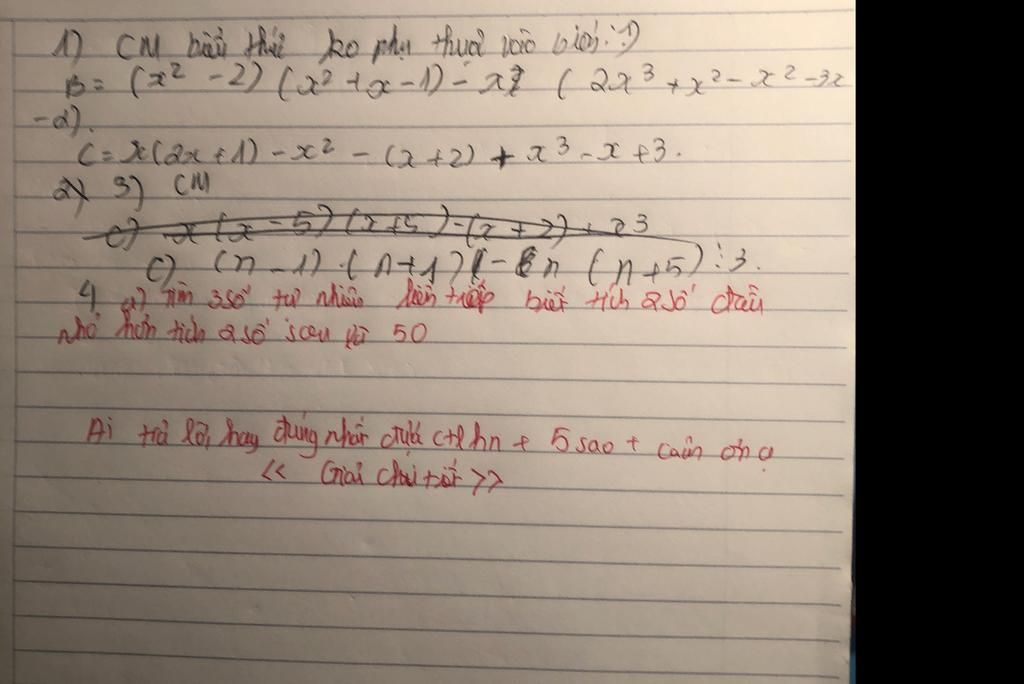 1) CM biểu thức ko phụ thuộc vào biến :1)
B = (x² - 2) (x² + x - 1) - x (2x³ + x² - x² - 3x
- 2).
C = x(2x + 1) - x² - (x + 2) + x³ - x + 3.
3) CM
c) x (x - 5) (x + 5) - (x + 2) + x3
c) (n - 1) . (n + 1) - n (n + 5) ⋮ 3.
4 a) Tìm 3 số tự nhiên liên tiếp biết tích 2 số đầu
nhỏ hơn tích 2 số sau là 50
Ai trả lời hay đúng nhất được ctlhn + 5 sao + cảm ơn ạ
<< Giải chi tiết >>